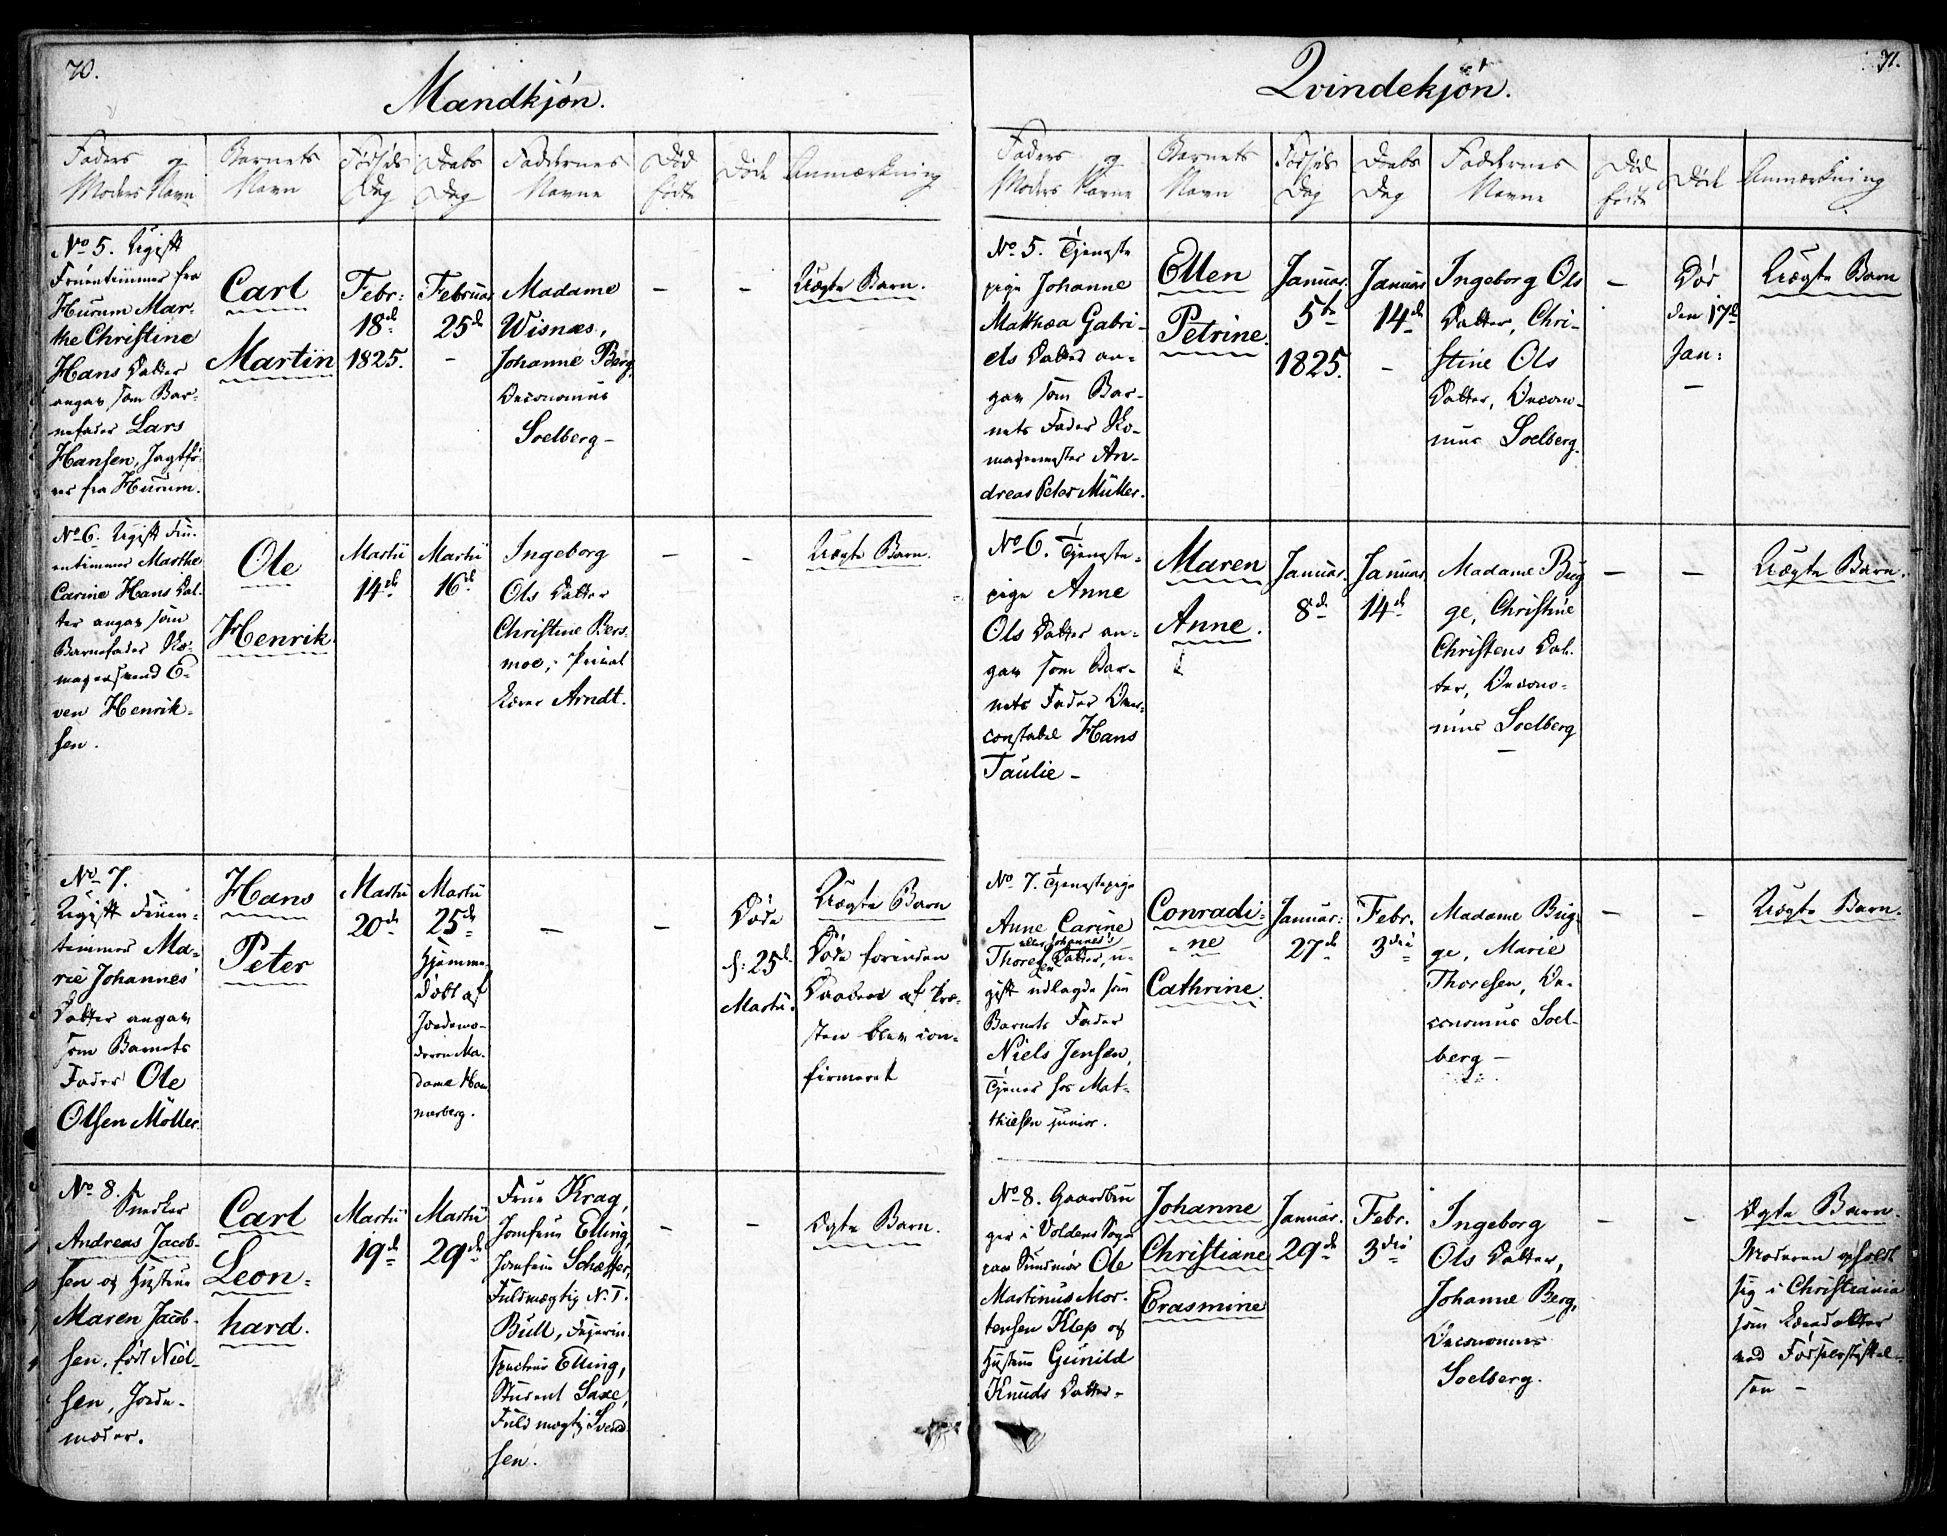 70.
Mandkjön.
Faders og
Moders Navn
Barnets
Navn
Födsels
Dag
Daabs
Dag
Faddernes
Navne
Död
födte
Döde
Anmærkning
No 5. Ugift
Fruentimmer fra
Hurum Mar-
the Christine
Hans Datter
angav som Bar-
nefader Lars
Hansen, Jagtfö-
rer fra Hurum.
Carl
Martin
Febr:
18d
1825.
Februar
25d
-
Madame
Wisnæs,
Johanne Berg,
Oeconomus
Soelberg-
-
-
Uægte Barn.
No 6. Ugift Fru-
entimmer Marthe
Carine Hans Dat-
ter angav som
Barnefader
magersvend E-
ven Henrik-
sen.
Ole
Henrik
Martii
14d
Martii
16d
Ingeborg
Ols Datter
Christine Bers-
moe,
Lærer Arndt.
-
-
Uægte Barn.
No 7.
Ugift Fruen-
timmer Ma-
rie Johannes
Datter angav
som Barnets
Fader Ole
Olsen Möller.
Hans
Peter
Martii
20d
Martii
25d
Hjemme-
döbt af
Jordemo-
deren Ma-
dame Ham
merberg.
-
-
Döde
d: 25d
Martii.
Uægte Barn
Döde forinden
Daaben af Præ-
sten blev con-
firmeret
No 8.
Snedker
Andreas Jacob-
sen og Hustrue
Maren Jacob-
sen, födt Niel-
sen, Jorde-
moder.
Carl
Leon-
hard.
Martii
19d
Martii
29d
Frue Krag,
Jomfrue Elling,
Jomfrue Schæffer,
Fuldmægtig N. T.
Bull, Fejerin-
specteur Elling,
Student Saxe,
Fuldmægtig Svend-
sen.
-
-
Ægte Barn.
71.
Qvindekjön.
Faders og
Moders Navne
Barnets
Navn
Födsels
Dag
Daabs
Dag
Faddernes
Navne
Död
födte
Döde
Anmærkning
No 5. Tjeneste
pige Johanne
Mathea Gabri-
els Datter an-
gav som Bar-
nets Fader Sko-
magermester An-
dreas Peter Müller.
Ellen
Petrine.
Januar.
5te
1825.
Januar
14d
-
Ingeborg Ols
Datter, Chri-
stine Ols
Datter, Oecono-
mus Soelberg.
-
Död
den 17d
Jan:
-
Uægte Barn
No 6. Tjeneste-
pige Anne
Ols Datter an-
gav som Bar-
nets Fader Over-
constabel Hans
Taulie-
Maren
Anne.
Januar.
8d
Januar.
14d
Madame Bug
ge, Christine
Christens Dat-
ter, Oecono-
mus Soelberg
-
-
-
Uægte Barn.
No 7. Tjenestepige
Anne Carine
eller Johannes:
Thoresen Datter, u-
gift udlagde som
Barnets Fader
Niels Jensen,
Tjener hos Mat-
thiesen junior.
Conradi-
ne
Cathrine.
Januar:
27d
Febr.
3die
Madame Bug-
ge, Marie
Thoresen, Oe-
conomus Soel-
berg-
-
-
Uægte Barn.
No 8. Gaardbru
ger i Voldens Sogn
paa Sundmör Ole
Martinus Mor-
tensen Klep og
Hustrue Gunild
Knuds Datter-
Johanne
Christiane
Erasmine
Januar.
29d
Febr.
3die
Ingeborg
Ols Datter,
Johanne Berg,
Oeconomus
Soelberg.
-
-
Ægte Barn
Moderen opholdt
sig i Christiania
som
ved Födselsstiftel-
sen -